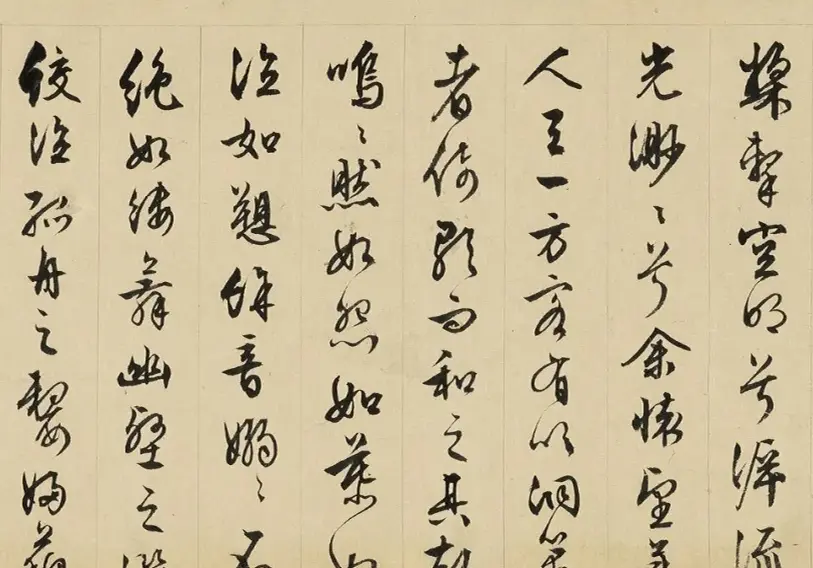 槳擊空明兮泝流
光渺〻兮余懷望美
人天一方客有以洞簫
者倚歌而和之其聲
嗚〻然如怨如慕如
泣如愬餘音嫋〻不
絕如縷舞幽壑之潛
蛟泣孤舟之嫠婦蘇